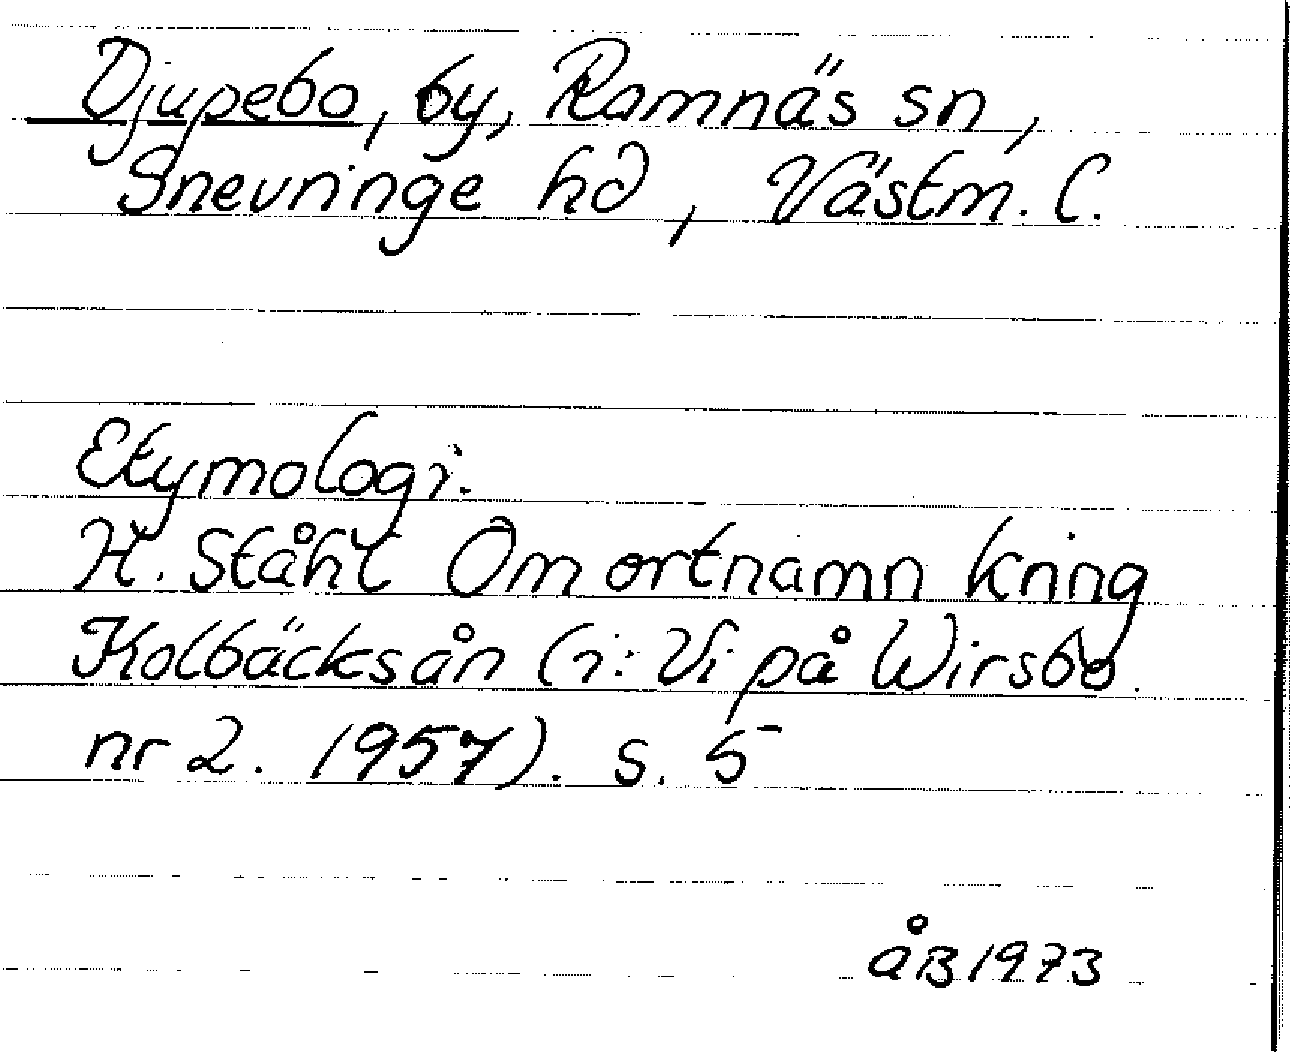 Djupebo, by, Ramnäs sn,
Snevringe hd, Västm. l.
Etymologi.
H. Ståhl Om ortnamn kring
Kolbäcksån (i: Vi på Wirsbo.
nr 2. 1957). s. 5
åB 1973